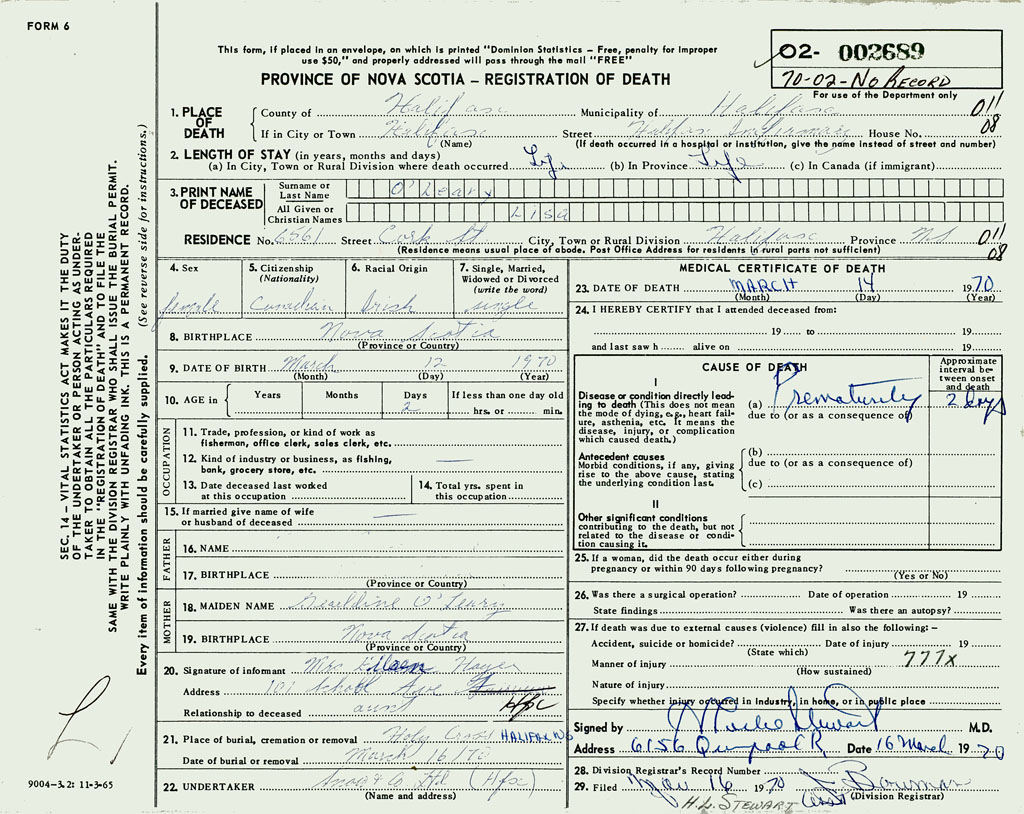 FORM 6
This form, if placed in an envelope, on which is printed "Dominion Statistics – Free, penalty for improper
use $50," and properly addressed will pass through the mail "FREE"
PROVINCE OF NOVA SCOTIA – REGISTRATION OF DEATH
02- 002689
70-02-No Record
For use of the Department only
1. PLACE OF DEATH
County of Halifax Municipality of Halifax 011
If in City or Town Halifax Street Halifax Infirmary House No. 08
(Name) (If death occurred in a hospital or institution, give the name instead of street and number)
2. LENGTH OF STAY (in years, months and days)
(a) In City, Town or Rural Division where death occurred Life (b) In Province Life (c) In Canada (if immigrant)
3. PRINT NAME OF DECEASED
Surname or Last Name O'Leary
All Given or Christian Names Lisa
RESIDENCE No. 6561 Street Cork St City, Town or Rural Division Halifax Province NS 011
(Residence means usual place of abode. Post Office Address for residents in rural parts not sufficient) 08
4. Sex female
5. Citizenship (Nationality) Canadian
6. Racial Origin Irish
7. Single, Married, Widowed or Divorced (write the word) single
8. BIRTHPLACE Nova Scotia
(Province or Country)
9. DATE OF BIRTH March 12 1970
(Month) (Day) (Year)
10. AGE in Years Months Days If less than one day old
2 hrs. or min.
OCCUPATION
11. Trade, profession, or kind of work as
fisherman, office clerk, sales clerk, etc.
12. Kind of industry or business, as fishing,
bank, grocery store, etc. —
13. Date deceased last worked
at this occupation
14. Total yrs. spent in
this occupation
15. If married give name of wife
or husband of deceased —
FATHER
16. NAME
17. BIRTHPLACE
(Province or Country)
MOTHER
18. MAIDEN NAME Geraldine O'Leary
19. BIRTHPLACE Nova Scotia
(Province or Country)
20. Signature of informant Mrs Eileen Hayes
Address 101 School Ave Hfx
Relationship to deceased aunt
21. Place of burial, cremation or removal Holy Cross HALIFAX NS
Date of burial or removal March 16/70
22. UNDERTAKER Snow & Co Ltd (Hfx)
(Name and address)
MEDICAL CERTIFICATE OF DEATH
23. DATE OF DEATH MARCH 14 1970
(Month) (Day) (Year)
24. I HEREBY CERTIFY that I attended deceased from:
19 to 19
and last saw h alive on 19
CAUSE OF DEATH
Approximate interval between onset and death
I
Disease or condition directly leading to death (This does not mean the mode of dying, e.g., heart failure, asthenia, etc. It means the disease, injury, or complication which caused death.)
(a) Prematurity 2 days
due to (or as a consequence of)
Antecedent causes
Morbid conditions, if any, giving rise to the above cause, stating the underlying condition last.
(b)
due to (or as a consequence of)
(c)
II
Other significant conditions
contributing to the death, but not related to the disease or condition causing it.
25. If a woman, did the death occur either during
pregnancy or within 90 days following pregnancy?
(Yes or No)
26. Was there a surgical operation? Date of operation 19
State findings Was there an autopsy?
27. If death was due to external causes (violence) fill in also the following:–
Accident, suicide or homicide? Date of injury 19
(State which) 777x
Manner of injury
(How sustained)
Nature of injury
Specify whether injury occurred in industry, in home, or in public place
Signed by Stewart M.D.
Address 6156 Quinpool R Date 16 March 1970
28. Division Registrar's Record Number
29. Filed Mar 16 1970 Bowman
(Division Registrar)
H.L. STEWART Asst
SEC. 14 – VITAL STATISTICS ACT MAKES IT THE DUTY
OF THE UNDERTAKER OR PERSON ACTING AS UNDER-
TAKER TO OBTAIN ALL THE PARTICULARS REQUIRED
IN THE "REGISTRATION OF DEATH" AND TO FILE THE
SAME WITH THE DIVISION REGISTRAR WHO SHALL ISSUE THE BURIAL PERMIT.
WRITE PLAINLY WITH UNFADING INK. THIS IS A PERMANENT RECORD.
Every item of information should be carefully supplied. (See reverse side for instructions.)
9004-3.2: 11-3-65